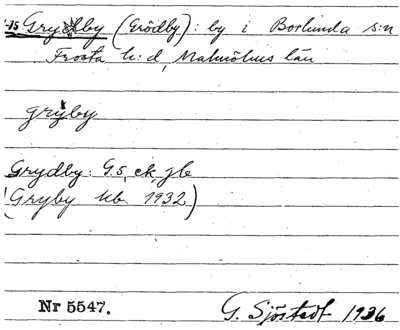 Grydby (Grödby): by i Borlunda s:n
Frosta h:d, Malmöhus län
gryby
Grydby: G.s, ek, jb
(Gryby Ub 1932)
Nr 5547. G. Sjöstedt 1936